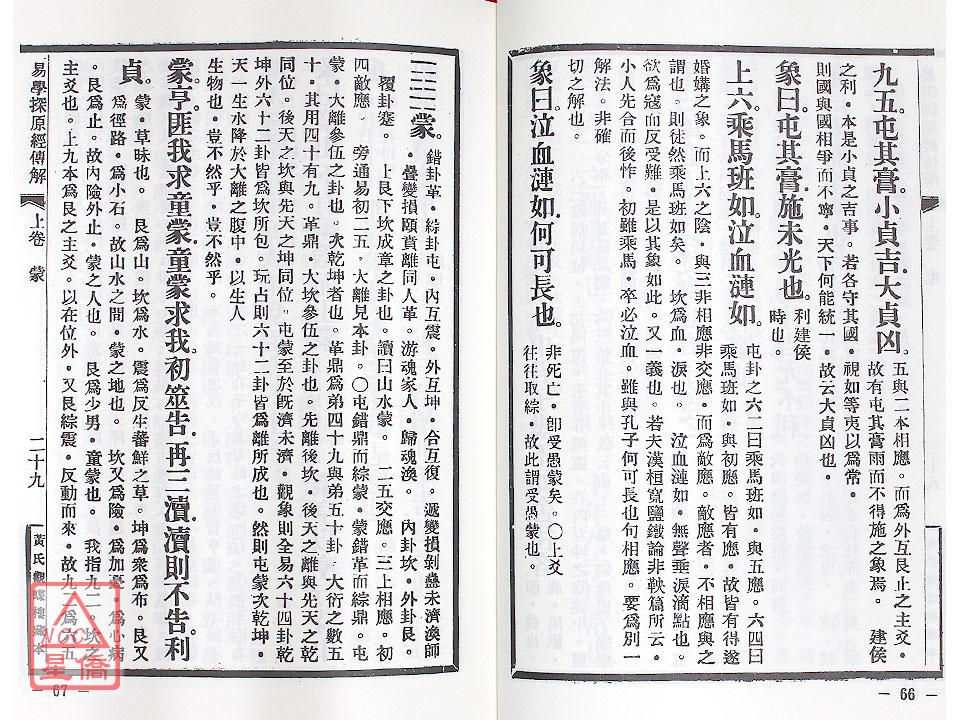 九五。屯其膏。小貞吉。大貞凶。五與二本相應。而爲外互艮止之主爻。
故有屯其膏雨而不得施之象焉。　建侯
之利。本是小貞之吉事。若各守其國。視如等夷以爲常。
則國與國相爭而不寧。天下何能統一。故云大貞凶也。
象曰。屯其膏。施未光也。利建侯
時也。
上六。乘馬班如。泣血漣如。屯卦之六二曰乘馬班如。與五應。六四曰
乘馬班如。與初應。皆有應。故皆有得遂
婚媾之象。而上六之陰。與三非相應非交應。而爲敵應。敵應者。不相應與之
謂也。則徒然乘馬班如矣。　坎爲血。淚也。　泣血漣如。無聲垂淚滴點也。
欲爲寇而反受難。是以其象如此。又一義也。若夫漢桓寬鹽鐵論非鞅篇所云。
小人先合而後忤。初雖乘馬。卒必泣血。雖與孔子何可長也句相應。要爲別一
解法。非確
切之解也。
象曰。泣血漣如。何可長也。非死亡。卽受愚蒙矣。〇上爻
往往取綜。故此謂受愚蒙也。
— 66 —
蒙。錯卦革。綜卦屯。內互震。外互坤。合互復。遞變損剝蠱未濟渙師
。疊變損頤賁離同人革。游魂家人。歸魂渙。　內卦坎。外卦艮。
覆卦蹇。　上艮下坎成章之卦也。讀曰山水蒙。　二五交應。三上相應。初
四敵應。　旁通易初二五。大離見本卦。〇屯錯鼎而綜蒙。蒙錯革而綜鼎。屯
蒙。大離參伍之卦也。次乾坤者也。革鼎爲弟四十九與弟五十卦。大衍之數五
十。其用四十有九。革鼎。大坎參伍之卦也。先離後坎。後天之離與先天之乾
同位。後天之坎與先天之坤同位。屯蒙至於旣濟未濟。觀象則全易六十四卦乾
坤外六十二卦皆爲坎所包。玩占則六十二卦皆爲離所成也。然則屯蒙次乾坤。
天一生水降於大離之腹中。以生人
生物也。豈不然乎。豈不然乎。
蒙。亨。匪我求童蒙。童蒙求我。初筮告。再三瀆。瀆則不告。利
貞。蒙。草昧也。　艮爲山。坎爲水。震爲反生蕃鮮之草。坤爲衆爲布。艮又
爲徑路。爲小石。故山水之間。蒙之地也。　坎又爲險。爲加憂。爲心病
。艮爲止。故內險外止。蒙之人也。　艮爲少男。童蒙也。　我指九二。坎之
主爻也。上九本爲艮之主爻。以在位外。又艮綜震。反動而來。故九二爲六五
易學探原經傳解
上卷　蒙
二十九
黃氏觀蝶樓藏本
NCC
星僑
— 67 —